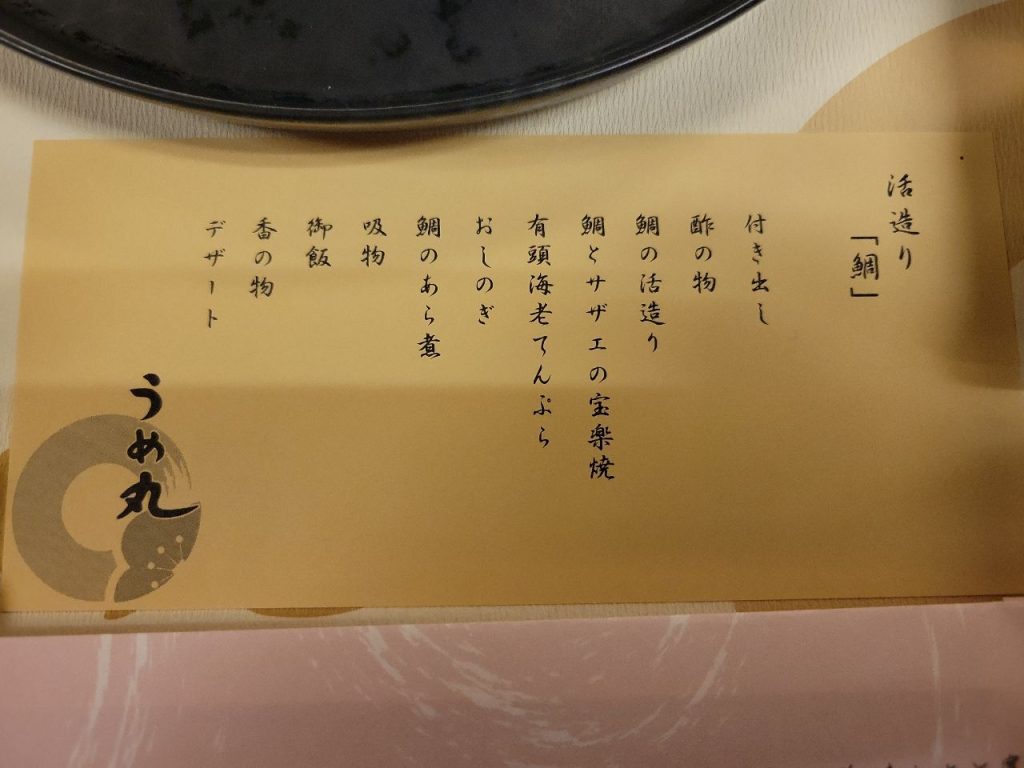 活造り
「鯛」
付き出し
酢の物
鯛の活造り
鯛とサザエの宝楽焼
有頭海老てんぷら
おしのぎ
鯛のあら煮
吸物
御飯
香の物
デザート
うめ丸